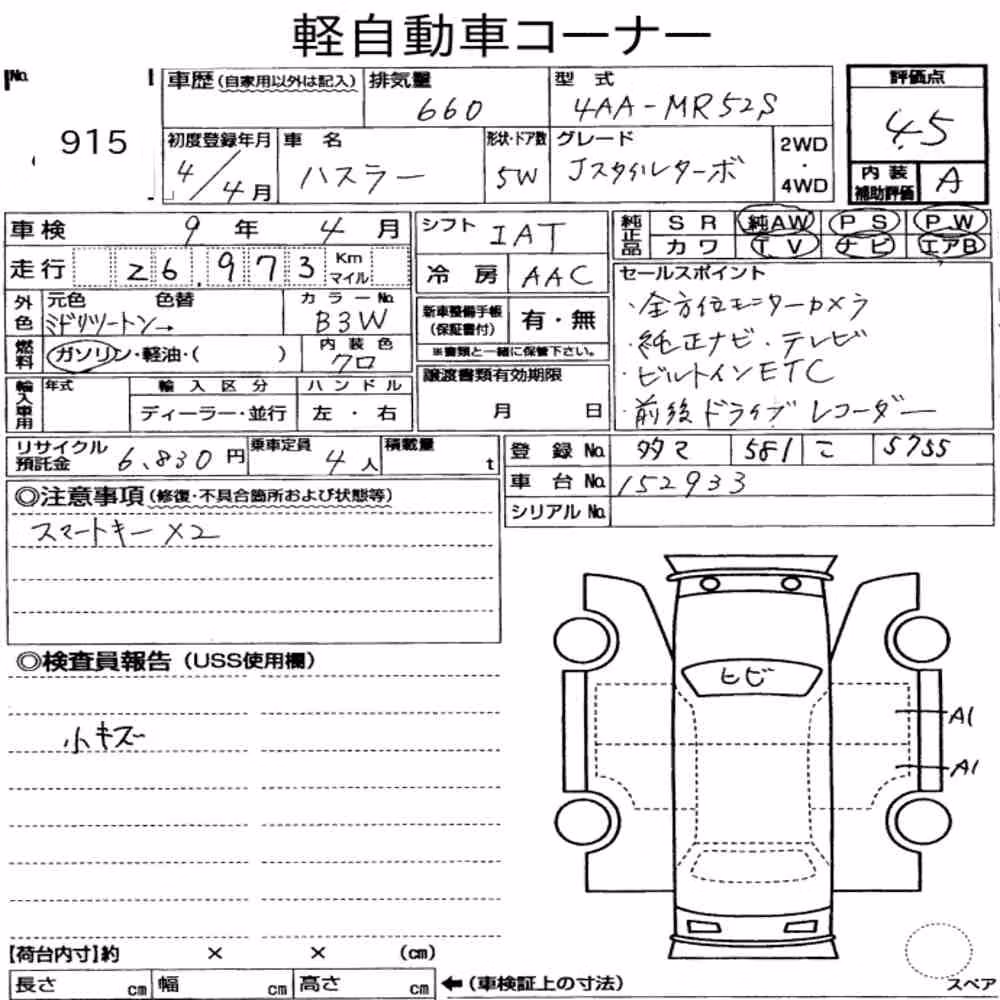 軽自動車コーナー
No. 915
車歴(自家用以外は記入) 排気量 660 型式 4AA-MR52S 評価点 4.5
初度登録年月 4/4月 車名 ハスラー 形状・ドア数 5W グレード Jスタイルターボ 2WD・4WD 内装補助評価 A
車検 9年 4月 シフト IAT 純正品 SR 純AW PS PW
走行 26,973 Km マイル 冷房 AAC カワ TV ナビ エアB
外色 元色 色替 カラーNo. セールスポイント
ミドリツートン→ B3W 新車整備手帳(保証書付) 有・無 ・全方位モニターカメラ
燃料 ガソリン・軽油・( ) 内装色 クロ ※書類と一緒に保管下さい。 ・純正ナビ・テレビ
輸入車用 年式 輸入区分 ハンドル 譲渡書類有効期限 ・ビルトインETC
ディーラー・並行 左・右 月 日 ・前後ドライブレコーダー
リサイクル預託金 6,830円 乗車定員 4人 積載量 t 登録No. 多マ 581 こ 5755
車台No. 152933
◎注意事項(修復・不具合箇所および状態等) シリアルNo.
スマートキー×2
◎検査員報告(USS使用欄)
ヒビ
小キズ A1
A1
【荷台内寸】約 × × (cm)
長さ cm 幅 cm 高さ cm ←(車検証上の寸法) スペア